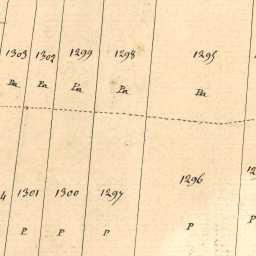 1303 1302 1299 1298 1295
Pa Pa Pa Pa Pa
1301 1300 1297 1296
P P P P P